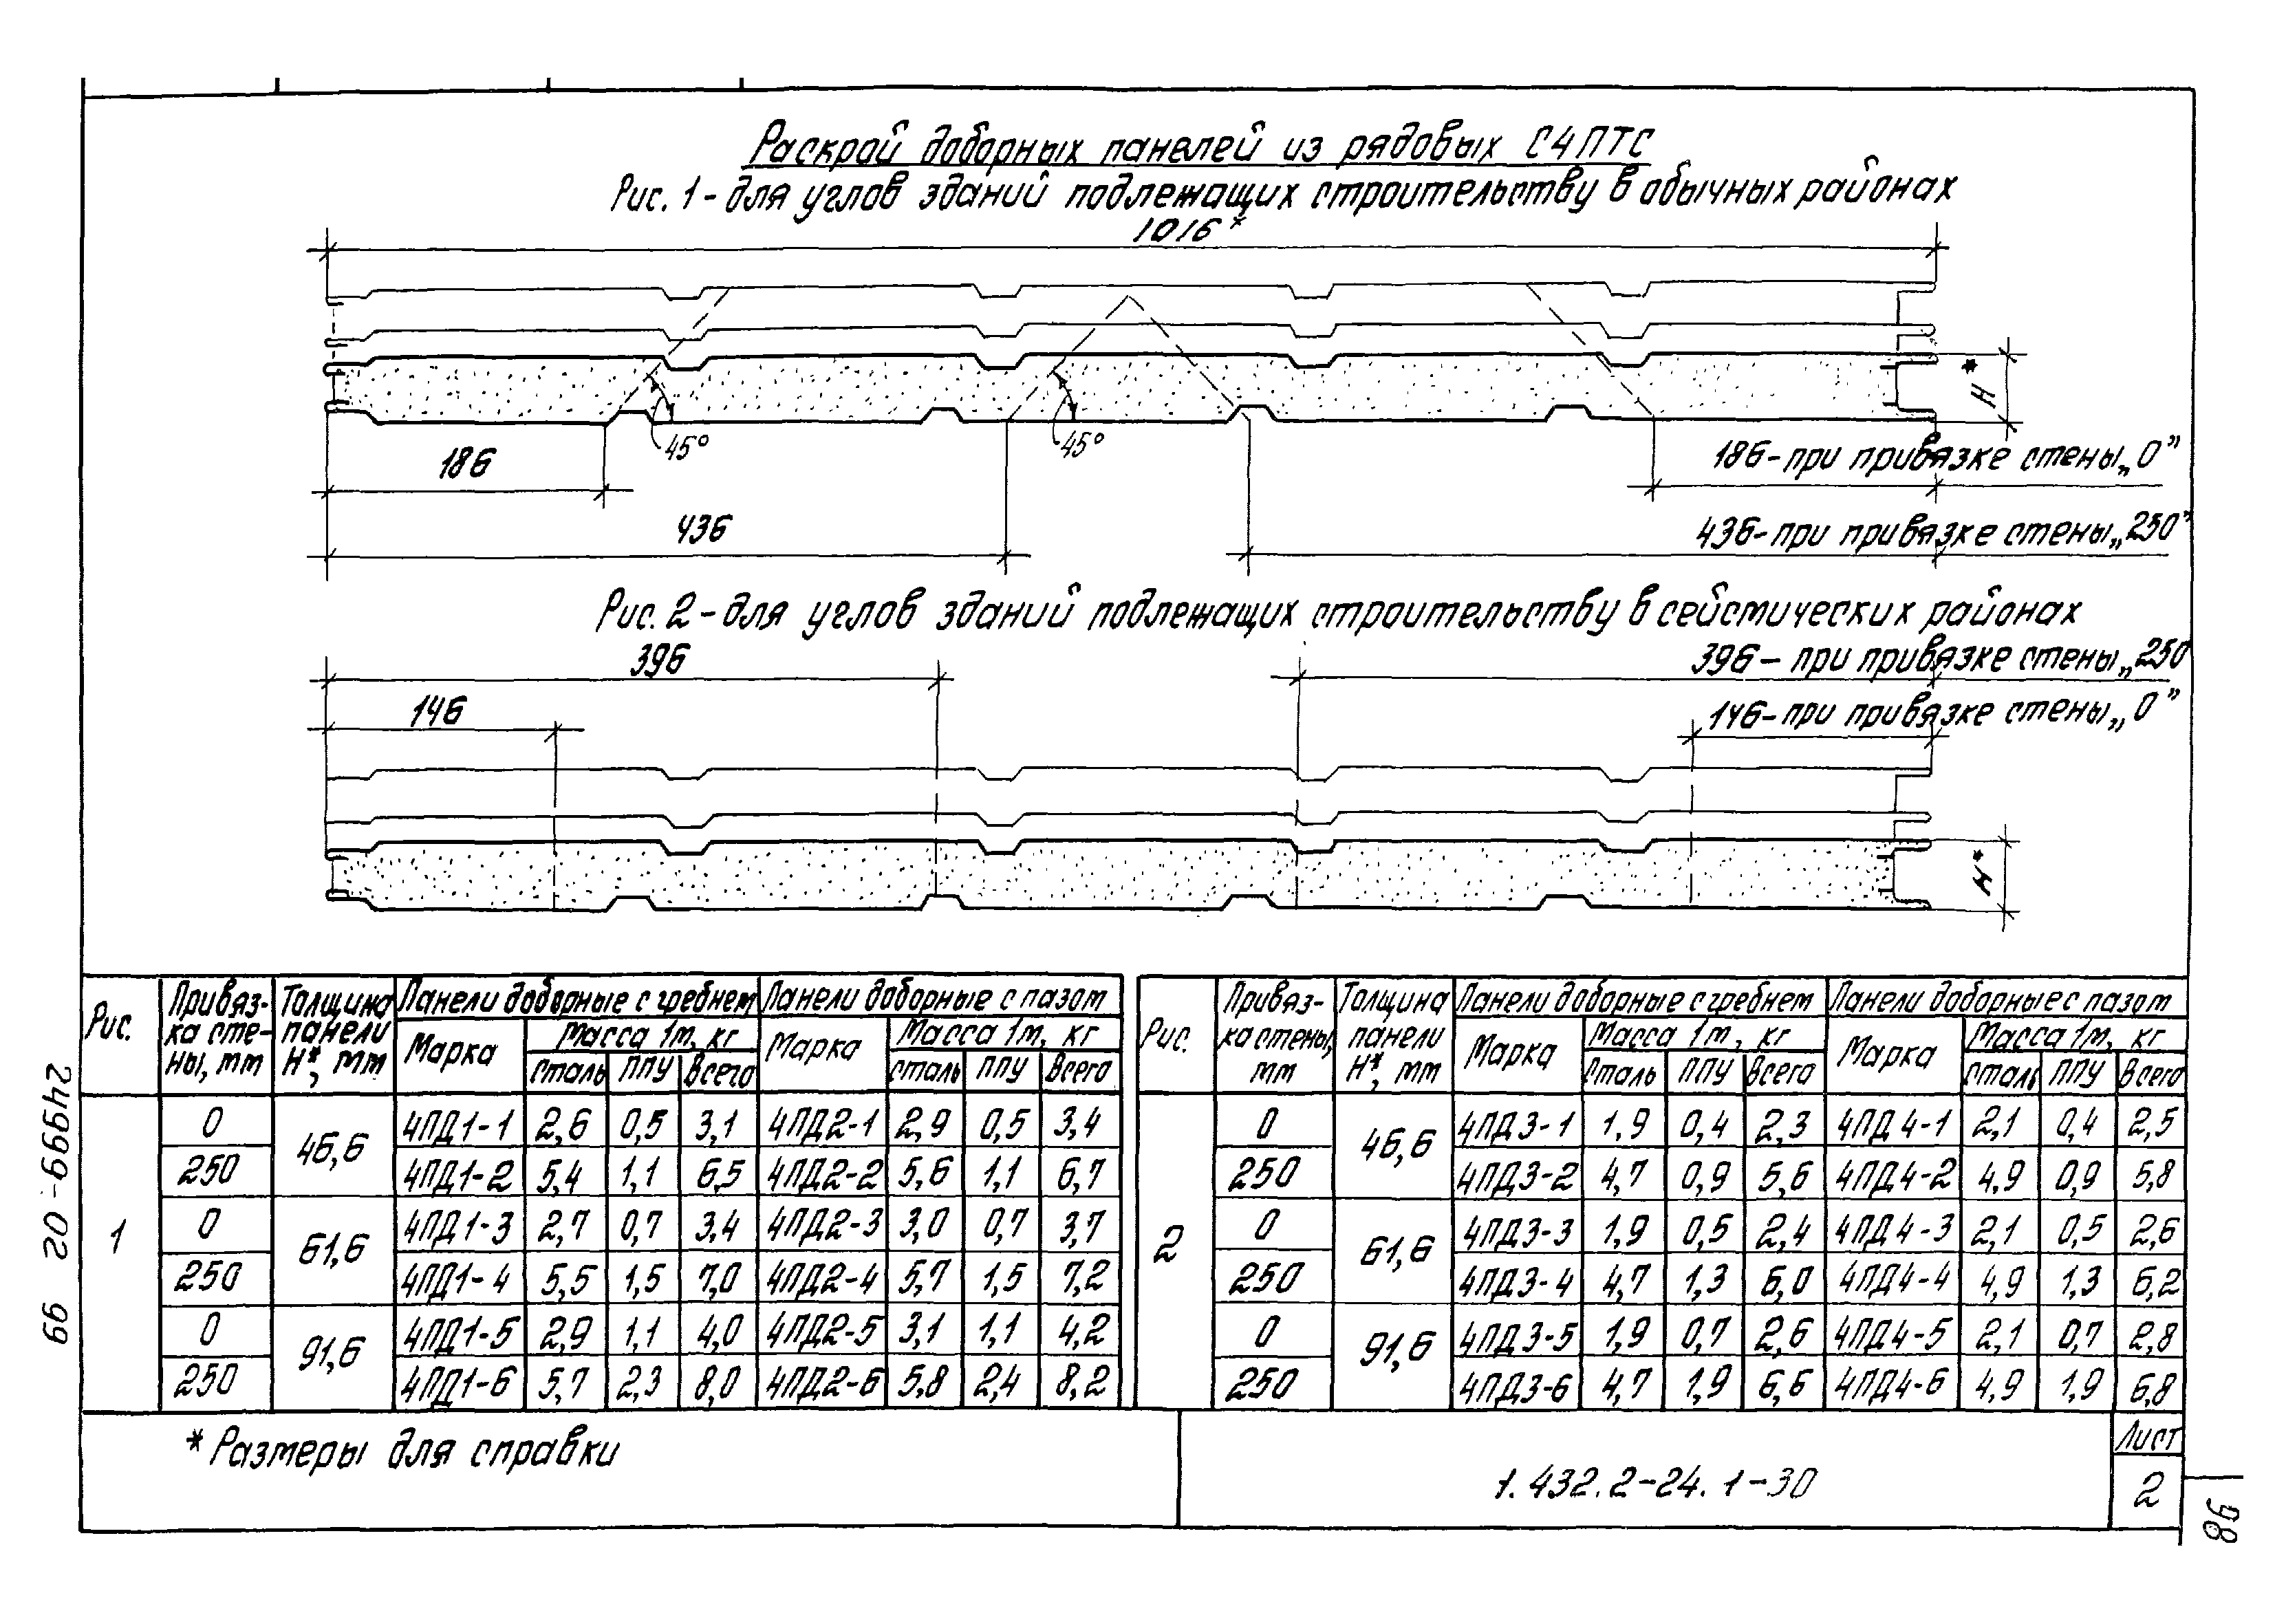 Раскрой доборных панелей из рядовых С4ПТС
Рис. 1 - для углов зданий подлежащих строительству в обычных районах
1016*
H*
45° 45°
186 186-при привязке стены „0”
436 436-при привязке стены „250”
Рис. 2 - для углов зданий подлежащих строительству в сейсмических районах
396 396 - при привязке стены „250
146 146-при привязке стены „0”
H*
Рис. Привяз- Толщина Панели доборные с гребнем Панели доборные с пазом
ка сте- панели Марка Масса 1м, кг Марка Масса 1м, кг
ны, мм H*, мм сталь ППУ всего сталь ППУ всего
1
0 46,6 4ПД1-1 2,6 0,5 3,1 4ПД2-1 2,9 0,5 3,4
250 4ПД1-2 5,4 1,1 6,5 4ПД2-2 5,6 1,1 6,7
0 61,6 4ПД1-3 2,7 0,7 3,4 4ПД2-3 3,0 0,7 3,7
250 4ПД1-4 5,5 1,5 7,0 4ПД2-4 5,7 1,5 7,2
0 91,6 4ПД1-5 2,9 1,1 4,0 4ПД2-5 3,1 1,1 4,2
250 4ПД1-6 5,7 2,3 8,0 4ПД2-6 5,8 2,4 8,2
Рис. Привяз- Толщина Панели доборные с гребнем Панели доборные с пазом
ка стены, панели Марка Масса 1м, кг Марка Масса 1м, кг
мм H*, мм сталь ППУ всего сталь ППУ всего
2
0 46,6 4ПД3-1 1,9 0,4 2,3 4ПД4-1 2,1 0,4 2,5
250 4ПД3-2 4,7 0,9 5,6 4ПД4-2 4,9 0,9 5,8
0 61,6 4ПД3-3 1,9 0,5 2,4 4ПД4-3 2,1 0,5 2,6
250 4ПД3-4 4,7 1,3 6,0 4ПД4-4 4,9 1,3 6,2
0 91,6 4ПД3-5 1,9 0,7 2,6 4ПД4-5 2,1 0,7 2,8
250 4ПД3-6 4,7 1,9 6,6 4ПД4-6 4,9 1,9 6,8
* Размеры для справки
1.432.2-24.1-30
Лист
2
24999-02 99
98